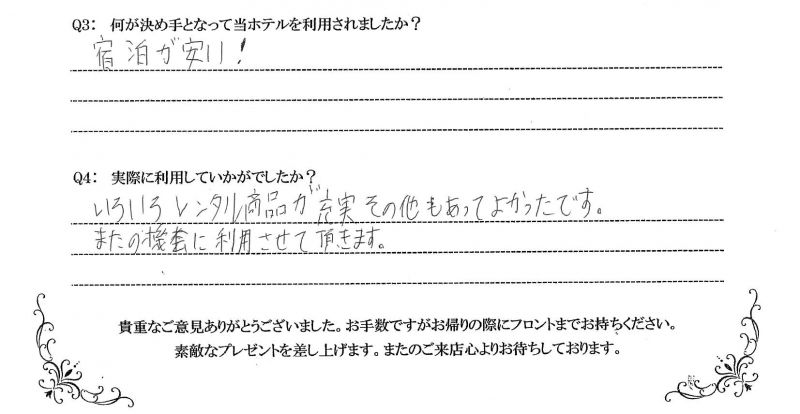 Q3: 何が決め手となって当ホテルを利用されましたか？
宿泊が安い！
Q4: 実際に利用していかがでしたか？
いろいろレンタル商品が充実その他もあってよかったです。
またの機会に利用させて頂きます。
貴重なご意見ありがとうございました。お手数ですがお帰りの際にフロントまでお持ちください。
素敵なプレゼントを差し上げます。またのご来店心よりお待ちしております。